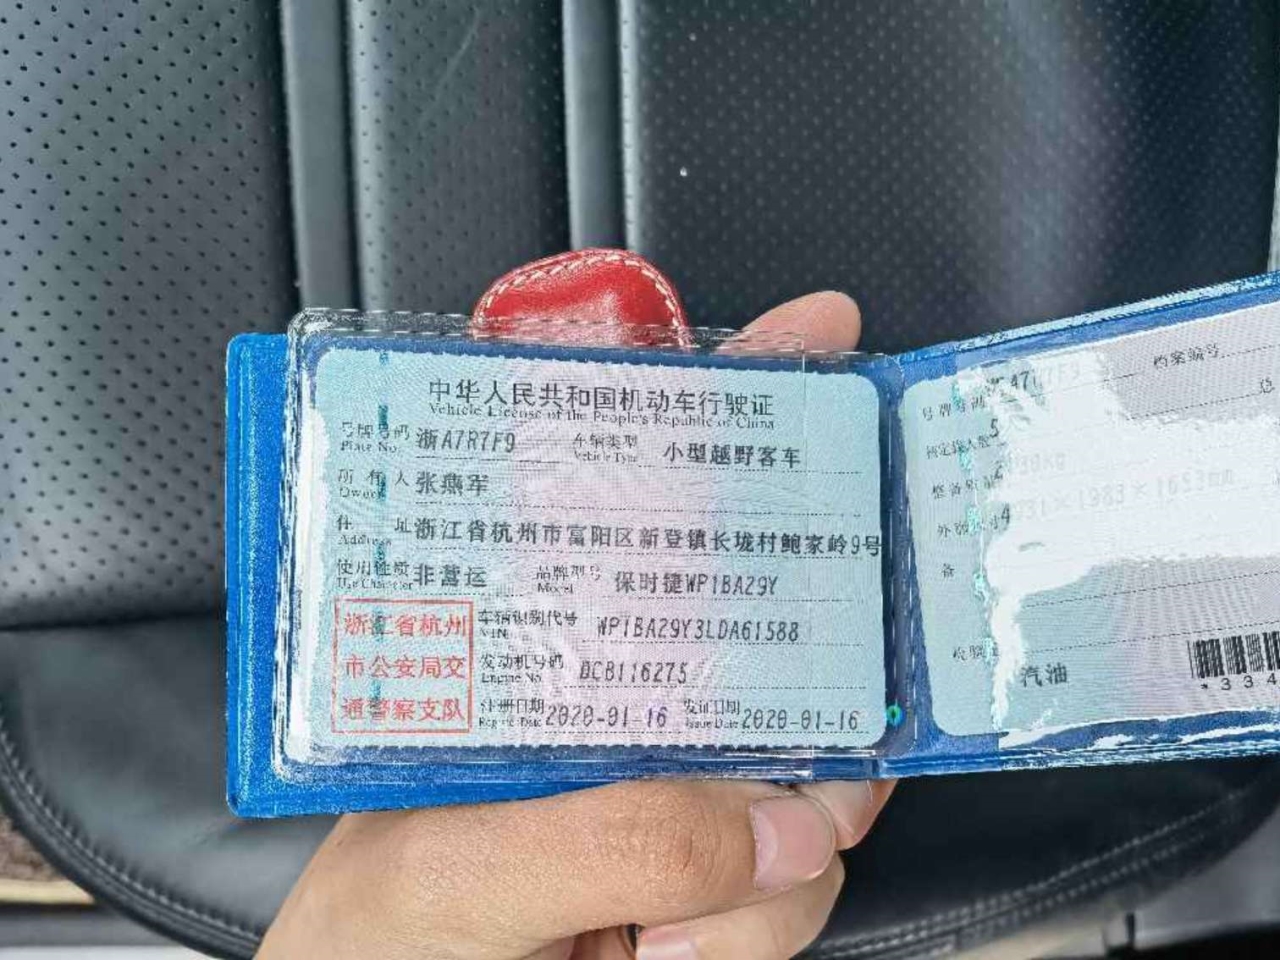 中华人民共和国机动车行驶证
Vehicle License of the People's Republic of China
号牌号码 浙A7R7F9 车辆类型 小型越野客车
Plate No. Vehicle Type
所有人 张燕军
Owner
住址 浙江省杭州市富阳区新登镇长垅村鲍家岭9号
Address
使用性质 非营运 品牌型号 保时捷WP1BA29Y
Use Character Model
浙江省杭州
市公安局交
通警察支队
车辆识别代号 WP1BA29Y3LDA61588
VIN
发动机号码 DCB116275
Engine No.
注册日期 2020-01-16 发证日期 2020-01-16
Register Date Issue Date
号牌号码
档案编号
整备质量
备
汽油
*334